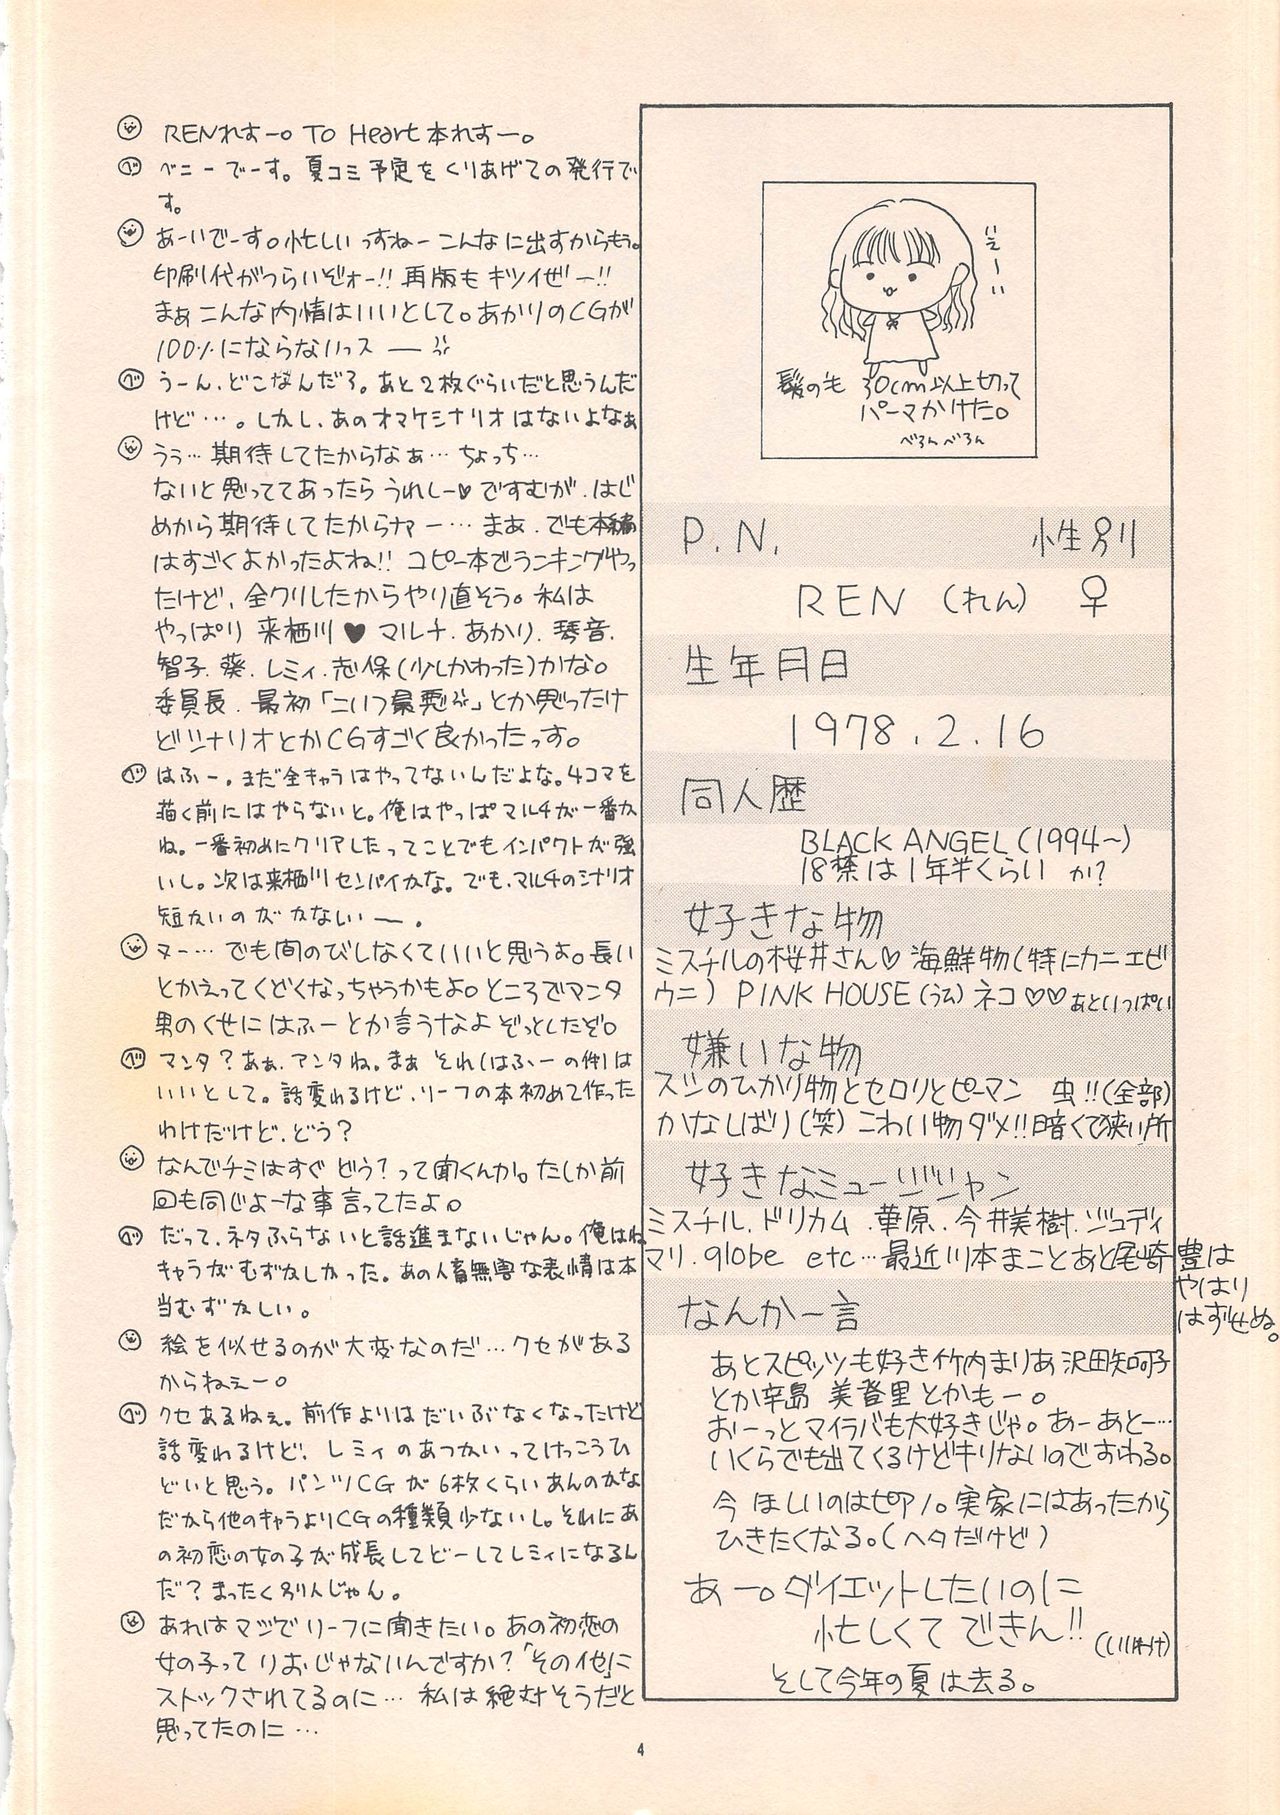 RENれすー。To Heart本れすー。
ベニーでーす。夏コミ予定をくりあげての発行で
す。
あーいでーす。忙しいっすねーこんなに出すからもぅ。
印刷代がつらいぞォー!!再版もキツイぜー!!
まぁこんな内情はいいとして。あかりのCGが
100%にならないっスー
うーん、どこなんだろ。あと2枚ぐらいだと思うんだ
けど…。しかし、あのオマケシナリオはないよなぁ
うぅ…期待してたからなぁ…ちょっち…
ないと思っててあったらうれしー♡ですむが、はじ
めから期待してたからナァー…まぁ、でも本編
はすごくよかったよね!!コピー本でランキングやっ
たけど、全クリしたからやり直そう。私は
やっぱり来栖川♥マルチ.あかり.琴音.
智子.葵.レミィ.志保(少しかわった)かな。
委員長、最初「こいつ最悪」とか思ったけ
どシナリオとかCGすごく良かったっす。
はふー。まだ全キャラはやってないんだよな。4コマを
描く前にはやらないと。俺はやっぱマルチが一番か
ね。一番初めにクリアしたってことでもインパクトが強
いし。次は来栖川センパイかな。でも、マルチのシナリオ
短かいのがかなしいー。
ヌー…でも間のびしなくていいと思うよ。長い
とかえってくどくなっちゃうかもよ。ところでマンタ
男のくせにはふーとか言うなよぞっとしたぞ。
マンタ?あぁ、アンタね。まぁそれ(はふーの件)は
いいとして。話変わるけど、リーフの本初めて作った
わけだけど、どう?
なんでチミはすぐどう?って聞くんか。たしか前
回も同じよーな事言ってたよ。
だって、ネタふらないと話進まないじゃん。俺はね
キャラがむずかしかった。あの人畜無害な表情は本
当むずかしい。
絵を似せるのが大変なのだ…クセがある
からねぇー。
クセあるねぇ。前作よりはだいぶなくなったけど
話変わるけど、レミィのあつかいってけっこうひ
どいと思う。パンツCGが6枚くらいあんのかな
だから他のキャラよりCGの種類少ないし。それにあ
の初恋の女の子が成長してどーしてレミィになるん
だ?まったく別人じゃん。
あれはマジでリーフに聞きたい。あの初恋の
女の子ってりおじゃないんですか?「その他」に
ストックされてるのに…私は絶対そうだと
思ってたのに…
いぇーい
髪のも30cm以上切って
パーマかけた。
べろんべろん
P.N. 性別
REN(れん) ♀
生年月日
1978.2.16
同人歴
BLACK ANGEL(1994〜)
18禁は1年半くらいか?
好きな物
ミスチルの桜井さん♡海鮮物(特にカニエビ
ウニ)PINK HOUSE(うム)ネコ♡♡あといっぱい
嫌いな物
スシのひかり物とセロリとピーマン 虫!!(全部)
かなしばり(笑)こわい物ダメ!!暗くて狭い所
好きなミュージジャン
ミスチル.ドリカム.華原.今井美樹.ジュディ
マリ.globe etc…最近川本まことあと尾崎豊は
やはり
はずせぬ。
なんか一言
あとスピッツも好き竹内まりあ沢田知可子
とか辛島美登里とかもー。
おーっとマイラバも大好きじゃ。あーあとー…
いくらでも出てくるけどキリないのでおわる。
今ほしいのはピアノ。実家にはあったから
ひきたくなる。(ヘタだけど)
あー。ダイエットしたいのに
忙しくてできん!!(いいわけ)
そして今年の夏は去る。
4